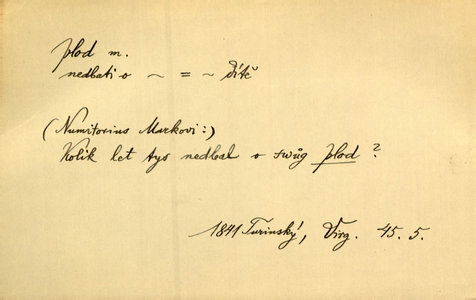 plod m.
nedbati o ~ = ~ dítě
(Numitorius Markovi:)
Kolik let tys nedbal o swůg plod?
1841 Turinský, Virg. 45. 5.